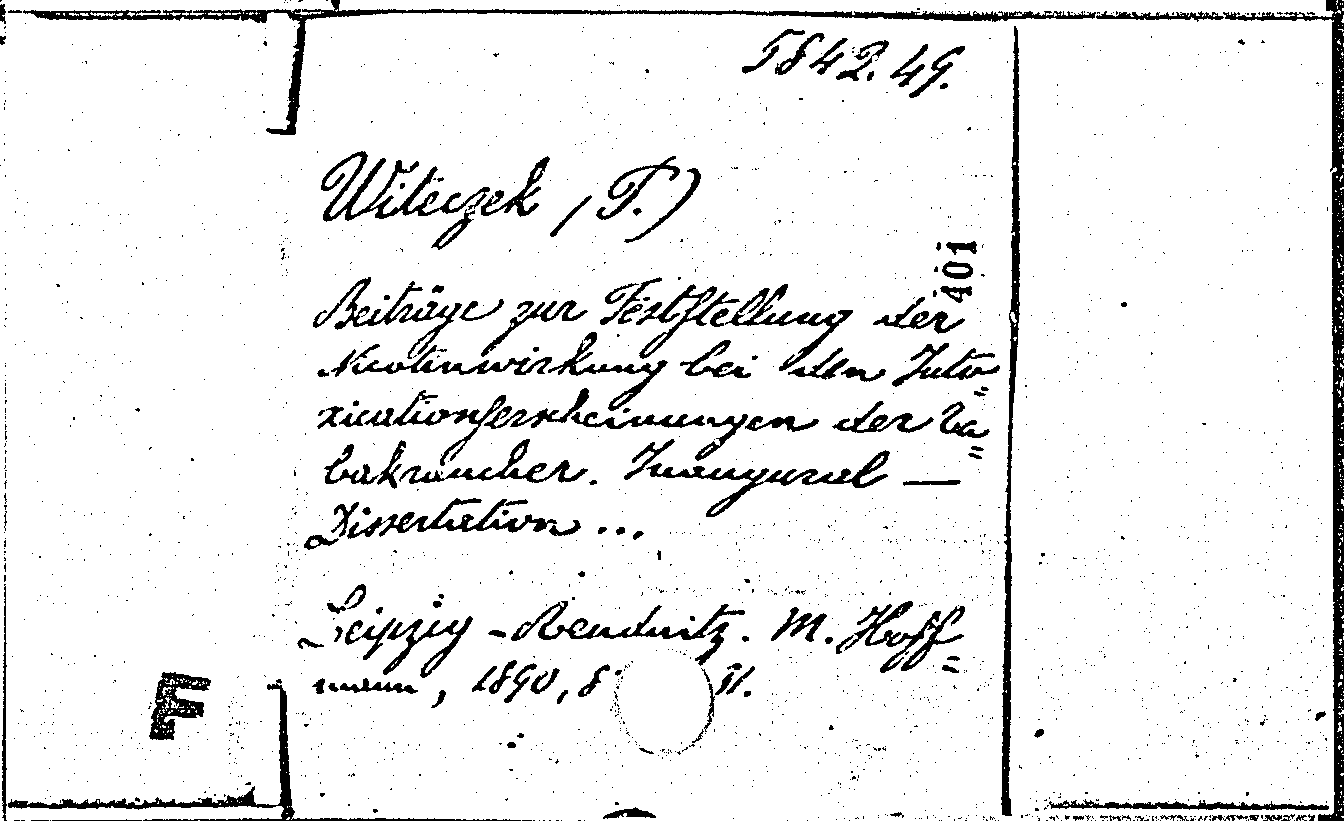 5842.49.
Witeczek (T.)
401
Beiträge zur Feststellung der
Nicotinwirkung bei den Into=
xicationserscheinungen der Ta=
bakraucher. Inaugural —
Dissertation ...
Leipzig-Reudnitz. M. Hoff=
mann, 1890, 8°
F